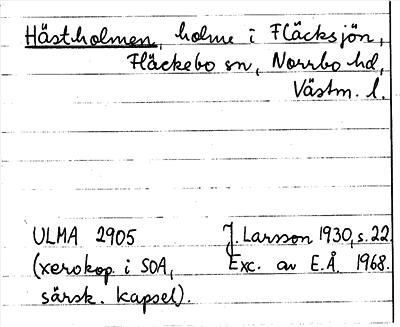 Hästholmen, holme i Fläcksjön,
Fläckebo sn, Norrbo hd,
Västm. l.
ULMA 2905 J. Larsson 1930, s. 22.
(xerokop. i SOA, Exc. av E.Å. 1968.
särsk. kapsel).